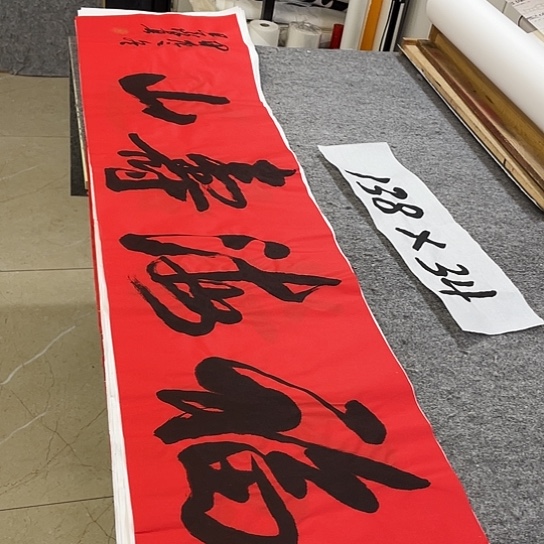 福海壽山
138×34